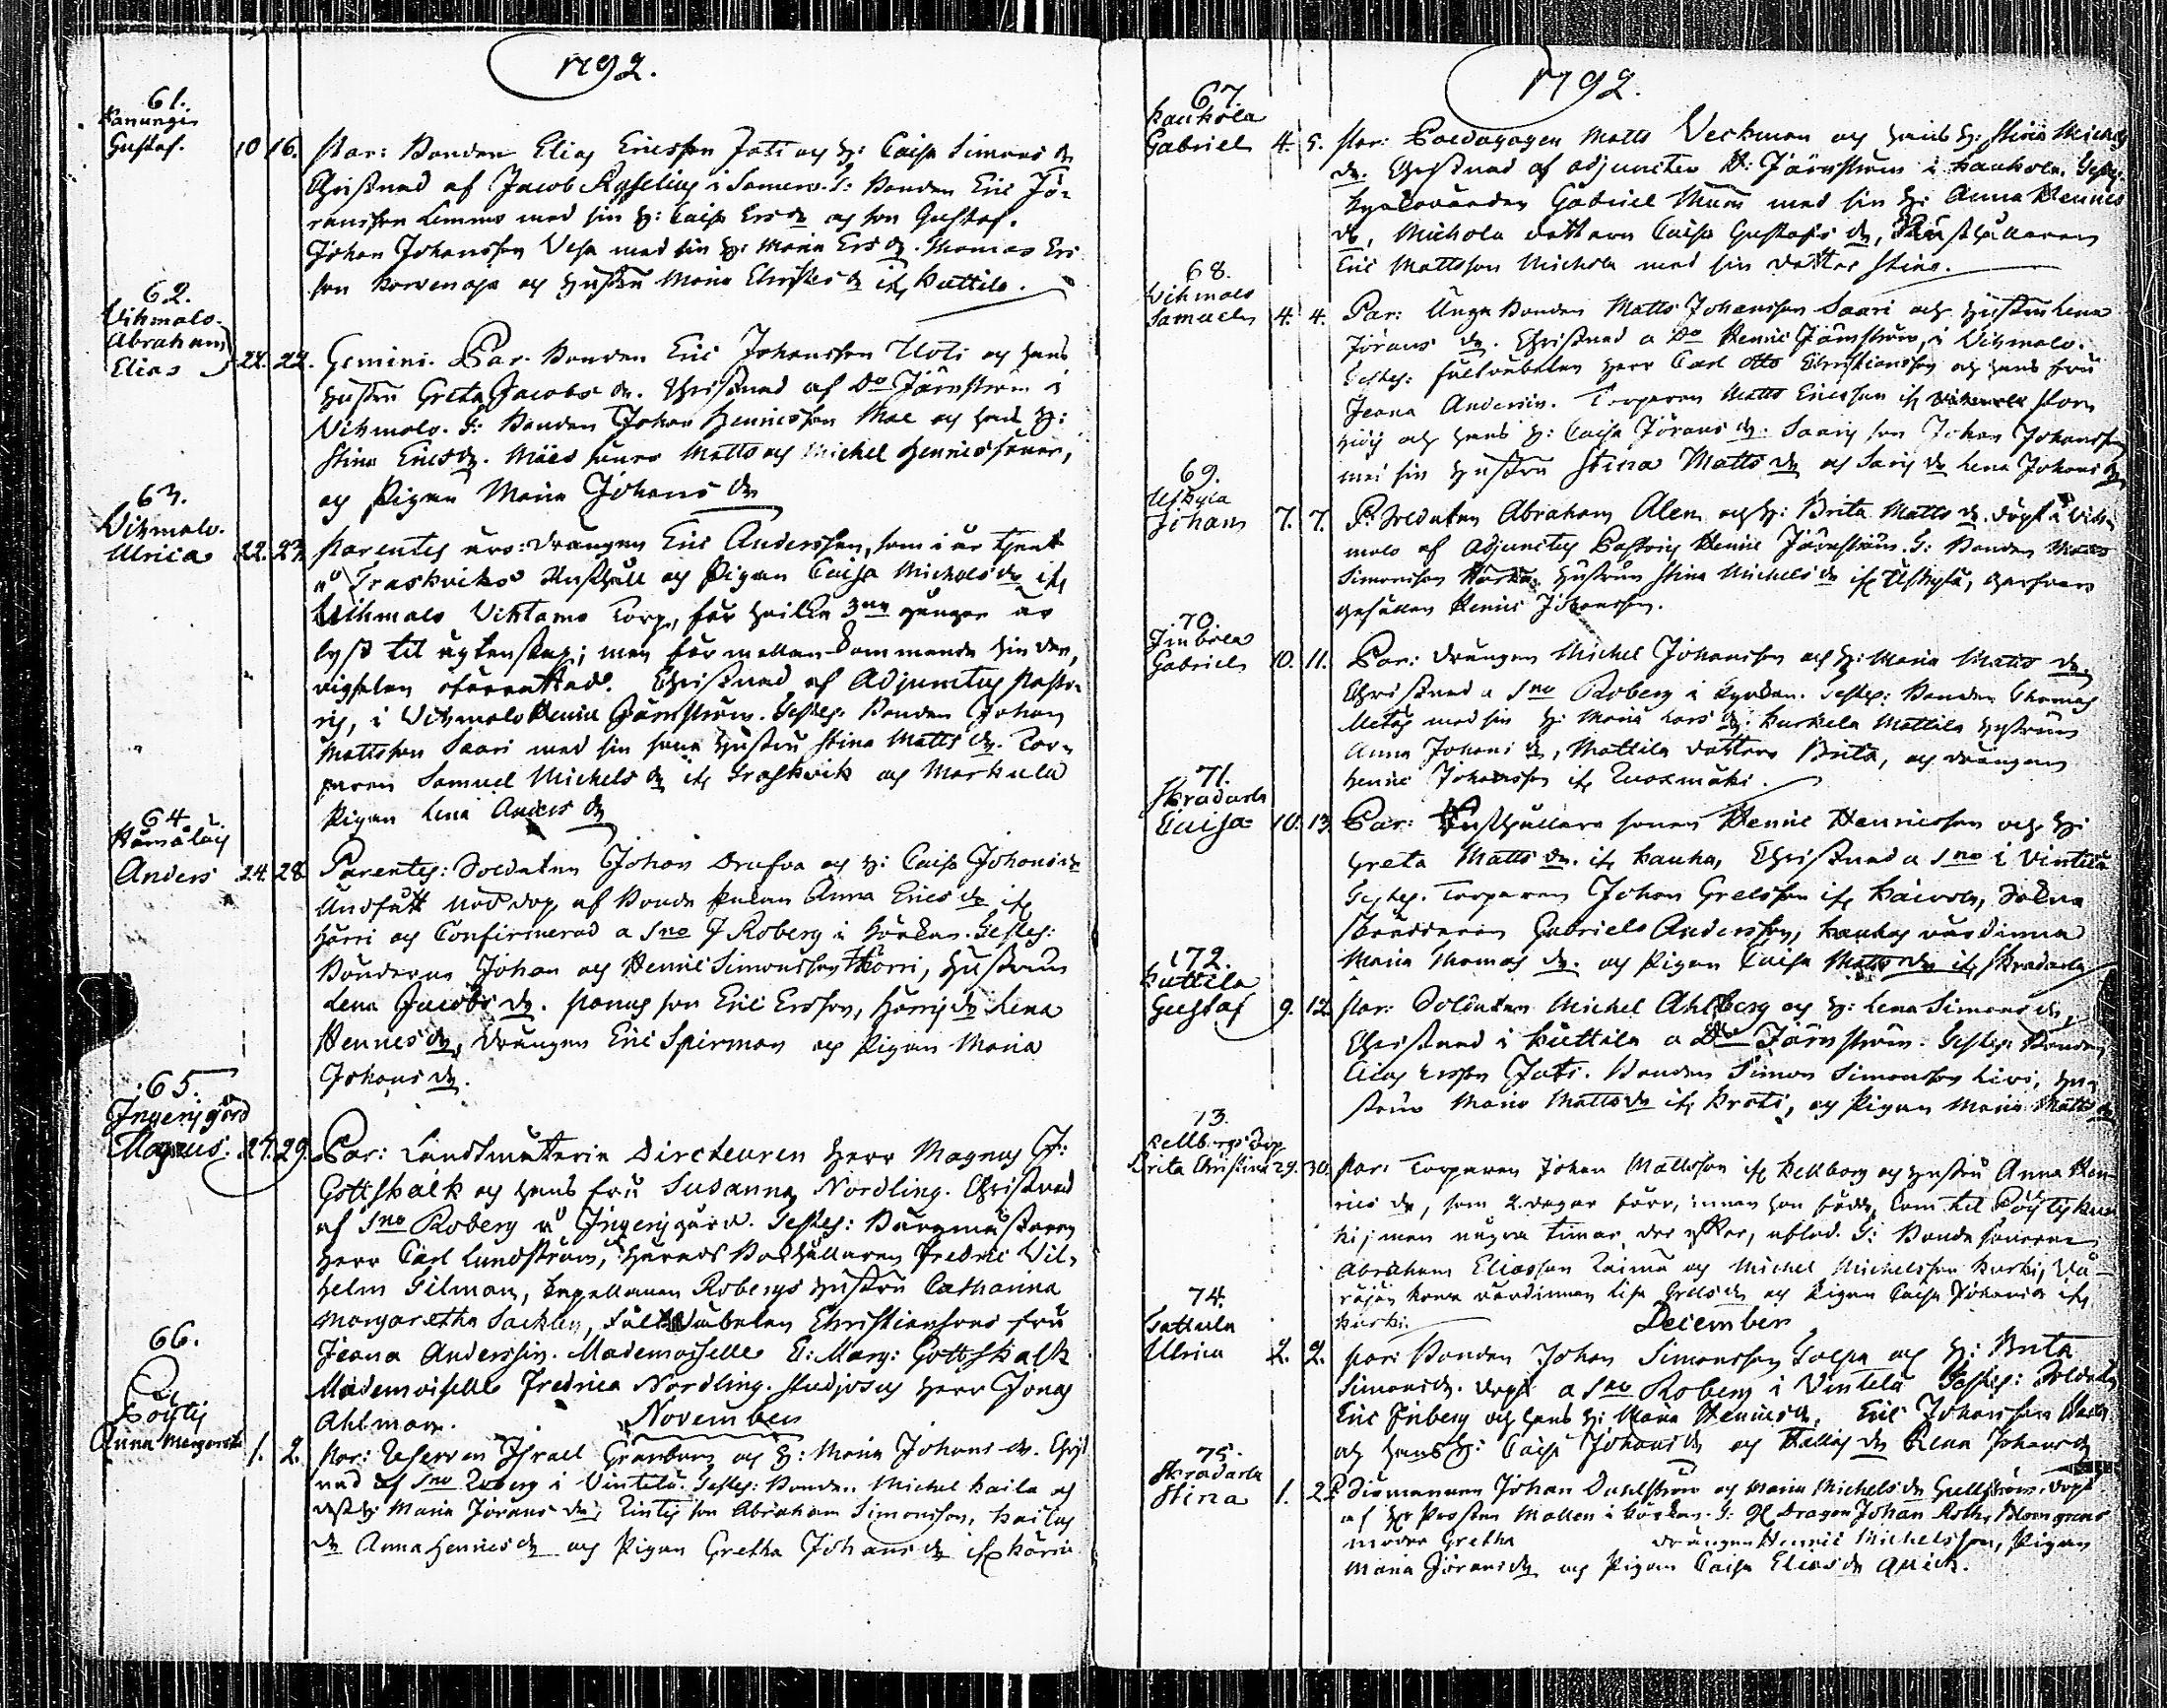 1792.
61.
Kanungis
Gustaf. 10 16. Par: Bonden Elias Ericsson Jati och H: Caisa Simons dr
Christnad af Jacob Rosselius i Somero. T: Bonden Eric Jö-
ransson Lemmo med sin H: Caisa Ers dr och son Gustaf.
Johan Johansson Vesa med sin H: Maria Ers dr. Thomas Ers
son Korvenoja och Hustru Maria Christers dr ifr Kuttila.
62.
Vihmalo.
Abraham
Elias 22. 22. Gemini. Par. Bonden Eric Johansson Uoti och hans
Hustru Greta Jacobs dr. Christnad af Do Järnström i
Vihmalo. T: Bonden Johan Henricsson Mäe och hans H:
Stina Erics dr. Mäes söner Matts och Michel Henrics söner,
och Pigan Maria Johans dr
63.
Vihmalo.
Ulrica 22. 23. Parentes äro: drängen Eric Andersson, som i år tjent
å Traskviks Rusthåll och Pigan Caisa Michels dr ifr
Vihmalo Vihtamo Torp, för hvilka 3ne gånger är
lyst til ägtenskap; men för mellankommande hinder,
vigselen oförrättad. Christnad af Adjunctus Pasto-
ris, i Vihmalo Henric Järnström. Testes: Bonden Johan
Mattsson Saari med sin sons Hustru Stina Matts dr. Tor-
paren Samuel Michels dr ifr Traskvik och Markula
Pigan Lena Anders dr
64.
Hämälais
Anders 24. 28 Parentes: Soldaten Johan Drufva och H: Caisa Johans dr
Undfått nöddop af Bonde Enkan Anna Erics dr ifr
Härri och Confirmerad a Sno J Roberg i Kyrkan. Testes:
Bönderne Johan och Henric Simonsson Härri, Hustrun
Lena Jacobs dr. Panus son Eric Ersson, Härris dr Lena
Henrics dr, Drängen Eric Spirman och Pigan Maria
Johans dr.
65.
Ingerisgård
Magnus. 27. 29. Par: Landtmäterie Directeuren Herr Magnus J:
Gottskalk och hans fru Susanna Nordling. Christnad
af Sno Roberg å Ingerisgård. Testes: Borgmästaren
Herr Carl Lundström, Härads Bokhållaren Fredric Vil-
helm Gilman, Capellanen Robergs Hustru Catharina
Margaretha Sacklen, Fältväbelen Christiansons fru
Jeana Anderssin. Mademoiselle E: Marg: Gottskalk
Mademoiselle Fredrica Nordling. Studiosus Herr Jonas
Ahlman.
November
66.
Pöytis
Anna Margareta 1. 2. Par: Reserven Israel Granberg och H: Maria Johans dr. Christ
nad af Sno Roberg i Vintelä. Testes: Bonden Michel Kaila och
dess H: Maria Jörans dr, Tintis son Abraham Simonsson, Kailas
dr Anna Henrics dr och Pigan Gretha Johans dr ifr Härri
1792.
67.
Haukola
Gabriel 4. 5. Par: Paedagogen Matts Veckman och hans H: Stina Michels
dr. Christnad af adjuncten H: Järnström i Haukola. Testes:
Kyrkovärden Gabriel Mumi med sin H: Anna Henrics
dr, Michola dottern Caisa Gustafs dr, Rusthållaren
Eric Mattsson Michola med sin dotter Stina.
68.
Vihmalo
Samuel 4. 4. Par: Unga Bonden Matts Johansson Saari och Hustru Lena
Jörans dr. Christnad a Do Henric Järnström, i Vihmalo.
Testes: Fältväbelen Herr Carl Otto Christiansson och hans fru
Jeana Anderssin. Torparen Matts Ericsson ifr Stor
hidis och hans H: Caisa Jörans dr. Saaris son Johan Johansson
med sin Hustru Stina Matts dr och Saris dr Lena Johans dr
69.
Uskyla
Johan 7. 7. P: Soldaten Abraham Alen och H: Brita Matts dr. döpt i Vih-
malo af Adjunctus Pastoris Henric Järnström. T: Bonden Matts
Simonsson Hörkä, Hustrun Stina Michels dr ifr Uskylä, Garfvare
gesällen Henric Johansson.
70.
Juvola
Gabriel 10. 11. Par: drängen Michel Johansson och H: Maria Matts dr.
Christnad a Sno Roberg i Kyrkan. Testes: Bonden Thomas
Metäs med sin H: Maria Lars dr. Kurkela Mattila Hustrun
Anna Johans dr, Mattila dottern Brita, och drängen
Henric Johansson ifr Tuosmäki.
71.
Skradarla
Caisa 10. 13. Par: Rusthållare sonen Henric Henricsson och H:
Greta Matts dr. ifr Hauka, Christnad a Sno i Vintelä
Testes. Torparen Johan Grelsson ifr Haivola, Sokne
skräddaren Gabriel Andersson, Haukas värdinna
Maria Thomas dr. och Pigan Caisa Matts dr ifr Skradarla
72.
Kuttila
Gustaf 9. 12. Par: Soldaten Michel Ahlberg och H: Lena Simons dr,
Christnad i Kuttila a Do Järnström. Testes: Bonden
Elias Ersson Jati. Bonden Simon Simonsson Livi, Hu-
strun Maria Matts dr ifr Kroti, och Pigan Maria Matts dr
73.
Kellbergs Torp
Brita Christina 29. 30. Par: Torparen Johan Mattsson ifr Kellberg och Hustru Anna Hen-
rics dr, som 2. dagar förr, innan hon födde, kom til Pöytis Kus-
ki; men några timar der efter, afled. T: Bonde sönerne
Abraham Eliasson Raima och Michel Michelsson Kuski, Vä-
räjän kona värdinnan Lisa Grels dr och Pigan Caisa Johans dr ifr
Kuski.
December
74.
Tattula
Ulrica 2. 2. Par: Bonden Johan Simonsson Tolpa och H: Brita
Simons dr. döpt a Sno Roberg i Vintelä Testes: Soldaten
Eric Friberg och hans H: Maria Henrics dr, Eric Johansson
och hans H: Caisa Johans dr och Kallas dr Lena Johans dr
75.
Skradarla
Stina 1. 2. P Timmannen Johan Dahlström och Maria Michels dr Gullström, döpt
af Hr Prosten Mallen i Kyrkan. T: Gl Dragon Johan Roth, Blomgrens
moder Gretha drängen Henric Michelsson, Pigan
Maria Jörans dr och Pigan Caisa Elias dr Qvick.